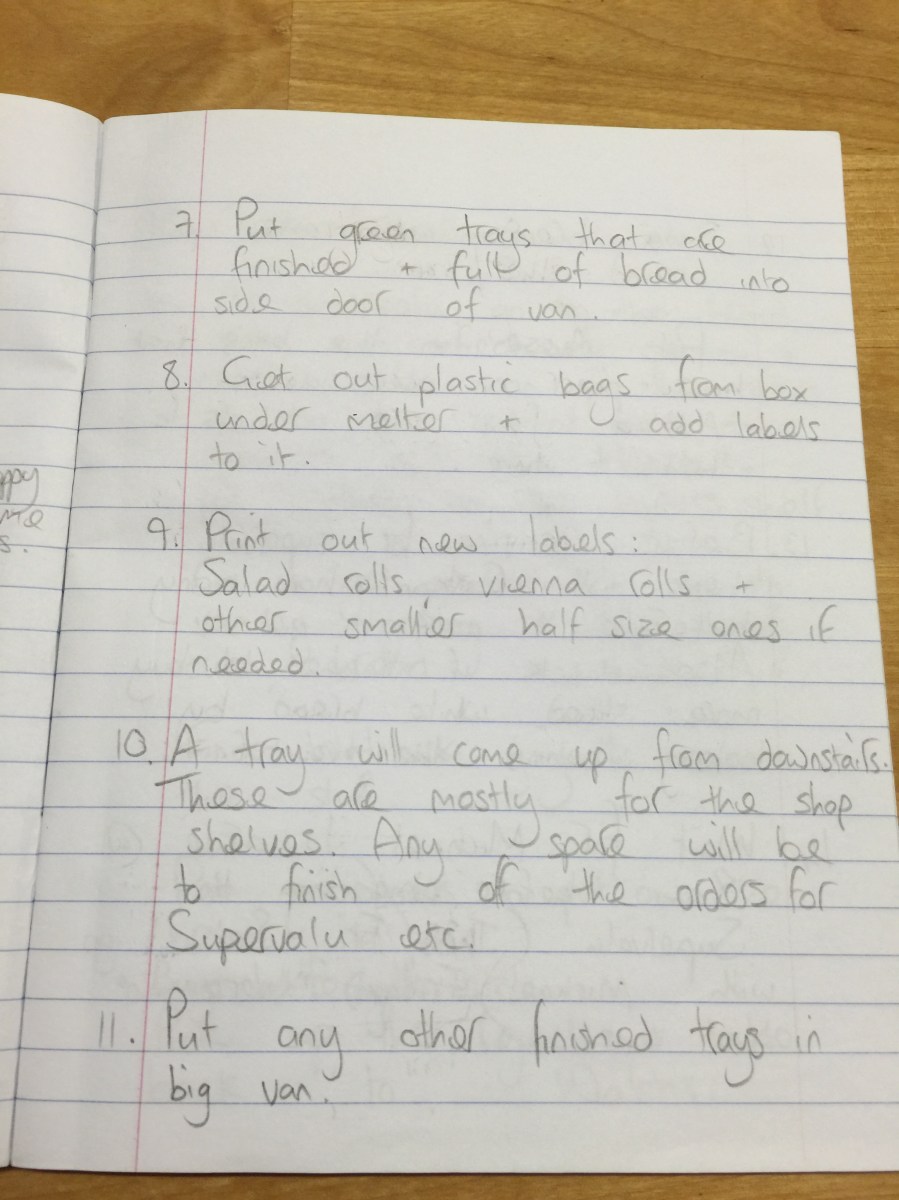 7. Put green trays that are
finished + full of bread into
side door of van.
8. Get out plastic bags from box
under melter + add labels
to it.
9. Print out new labels:
Salad rolls, vienna rolls +
other smaller half size ones if
needed.
10. A tray will come up from downstairs.
These are mostly for the shop
shelves. Any spare will be
to finish of the orders for
Supervalu etc.
11. Put any other finished trays in
big van.